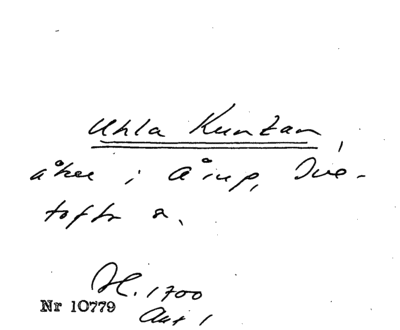 Uhla Kuntan,
åker i Åirup, Ive-
tofta s.
H. 1700
Akt 1
Nr 10779